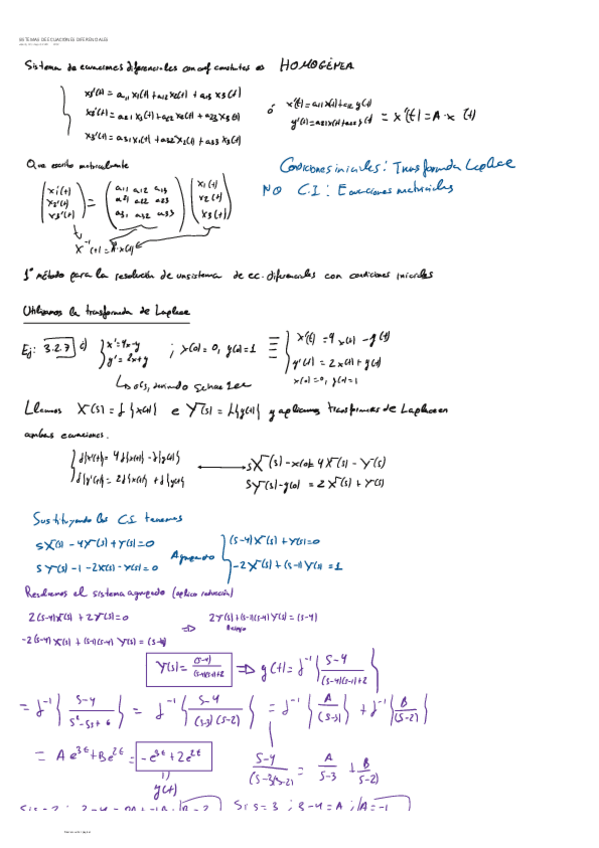 SISTEMAS DE ECUACIONES DIFERENCIALES
Sistema de ecuaciones diferenciales con coef constantes es HOMOGÉNEA
x1'(t) = a11 x1(t) + a12 x2(t) + a13 x3(t)
x2'(t) = a21 x1(t) + a22 x2(t) + a23 x3(t)
x3'(t) = a31 x1(t) + a32 x2(t) + a33 x3(t)
ó x'(t) = a11 x(t) + a12 y(t)
y'(t) = a21 x(t) + a22 y(t) = x'(t) = A·x(t)
Que escrito matricialmente
(x1'(t) x2'(t) x3'(t)) = (a11 a12 a13 a21 a22 a23 a31 a32 a33) (x1(t) x2(t) x3(t))
Condiciones iniciales: Transformada Laplace
NO C.I: Ecuaciones matriciales
1º método para la resolución de un sistema de ec. diferenciales con condiciones iniciales
Utilizamos la trasformada de Laplace
Ej: 3.2.7 c) { x'=4x-y y'=2x+y ; x(0)=0, y(0)=1 ≡ { x'(t) = 4x(t) - y(t)
y'(t) = 2x(t) + y(t)
x(0)=0, y(0)=1
Llamamos X(s) = L{x(t)} e Y(s) = L{y(t)} y aplicamos transformadas de Laplace en
ambas ecuaciones.
L{x'(t)} = 4L{x(t)} - L{y(t)} ⟷ sX(s) - x(0) = 4X(s) - Y(s)
L{y'(t)} = 2L{x(t)} + L{y(t)} sY(s) - y(0) = 2X(s) + Y(s)
Sustituyendo las C.I. tenemos
sX(s) - 4X(s) + Y(s) = 0
sY(s) - 1 - 2X(s) - Y(s) = 0
Agrupando { (s-4)X(s) + Y(s) = 0
-2X(s) + (s-1)Y(s) = 1
Resolvemos el sistema agrupado (aplico reducción)
2(s-4)X(s) + 2Y(s) = 0
-2(s-4)X(s) + (s-1)(s-4)Y(s) = (s-4)
⇒ 2Y(s) + (s-1)(s-4)Y(s) = (s-4)
Despejo
Y(s) = (s-4)/((s-4)(s-1)+2) ⇒ y(t) = L⁻¹{ (s-4)/((s-4)(s-1)+2) }
= L⁻¹{ (s-4)/(s²-5s+6) } = L⁻¹{ (s-4)/((s-3)(s-2)) } = L⁻¹{ A/(s-3) } + L⁻¹{ B/(s-2) }
= Ae^3t + Be^2t = -e^3t + 2e^2t
y(t)
(s-4)/((s-3)(s-2)) = A/(s-3) + B/(s-2)
Si s=3 ; 3-4 = A ; A=-1